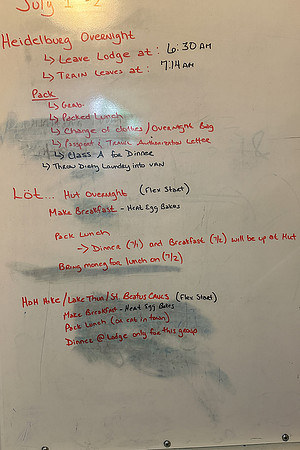 July 1
Heidelburg Overnight
↳ Leave Lodge at: 6:30 AM
↳ Train leaves at: 7:14 AM
Pack
↳ Grab
↳ Packed Lunch
↳ Change of clothes/Overnight Bag
↳ Passport & Travel Authorization Letter
↳ Class A for Dinner
↳ Throw Dirty Laundry into van
Löt... Hut Overnight (Flex Start)
Make Breakfast - Heat Egg Bakes
Pack Lunch
-> Dinner (7/1) and Breakfast (7/2) will be at Hut
Bring money for lunch on (7/2)
HoH Hike/Lake Thun/St. Beatus Caves (Flex Start)
Make Breakfast - Heat Egg Bakes
Pack Lunch (or eat in town)
Dinner @ Lodge only for this group